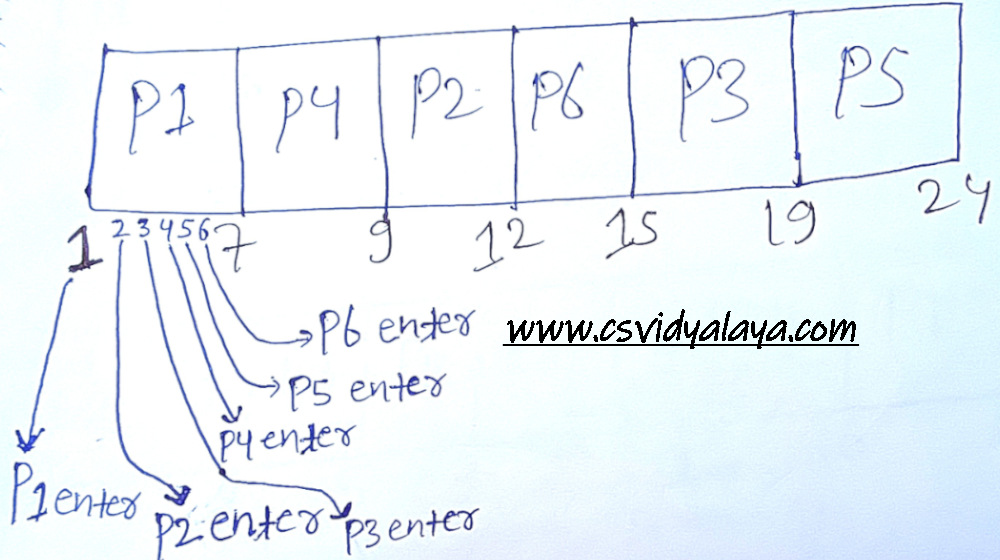 P1 P4 P2 P6 P3 P5
1 2 3 4 5 6 7 9 12 15 19 24
P6 enter
www.csvidyalaya.com
P5 enter
P4 enter
P1 enter
P2 enter
P3 enter